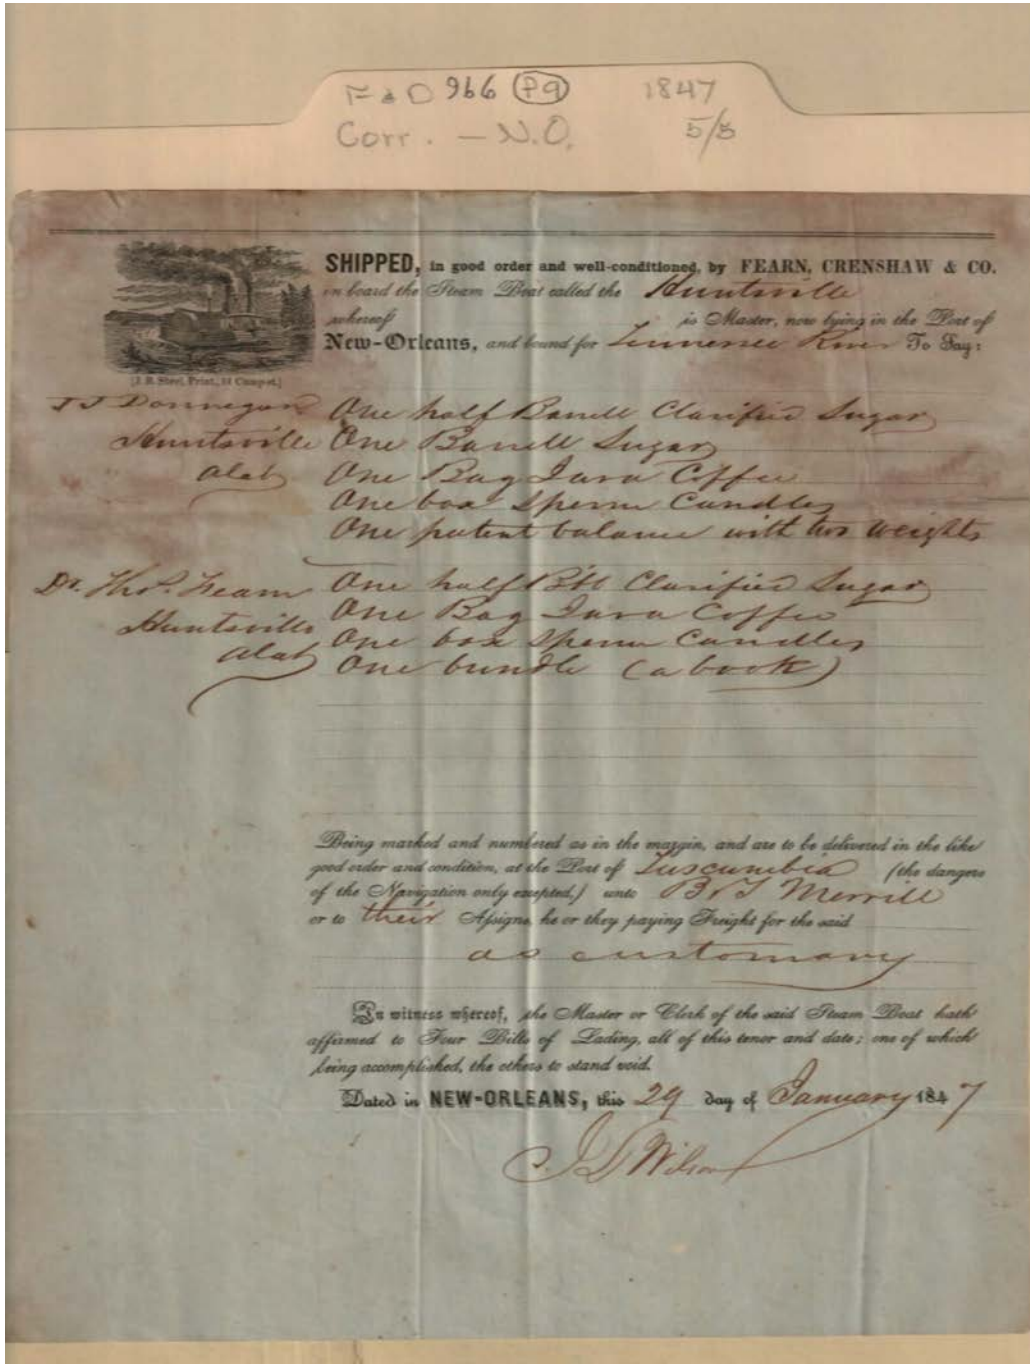 F & D 966 (P9) 1847
Corr. - N.O. 5/3
SHIPPED, in good order and well-conditioned, by FEARN, CRENSHAW & CO.
on board the Steam Boat called the Huntsville
whereof is Master, now lying in the Port of
New-Orleans, and bound for Tennessee River To Say:
[J. B. Steel, Print., 14 Camp st.]
J J Donnegan One half Barrell Clarified Sugar
Huntsville One Barrell Sugar
Alab One Bag Java Coffee
One box Sperm Candles
One patent balance with two weights
Dr. Thos. Fearn One half Bbl Clarified Sugar
Huntsville One Bag Java Coffee
Alab One box Sperm Candles
One bundle (a book)
Being marked and numbered as in the margin, and are to be delivered in the like
good order and condition, at the Port of Tuscumbia (the dangers
of the Navigation only excepted,) unto B & T Merrill
or to their Assigns, he or they paying Freight for the said
as customary
In witness whereof, the Master or Clerk of the said Steam Boat hath
affirmed to Four Bills of Lading, all of this tenor and date; one of which
being accomplished, the others to stand void.
Dated in NEW-ORLEANS, this 29 day of January 1847
Wilson